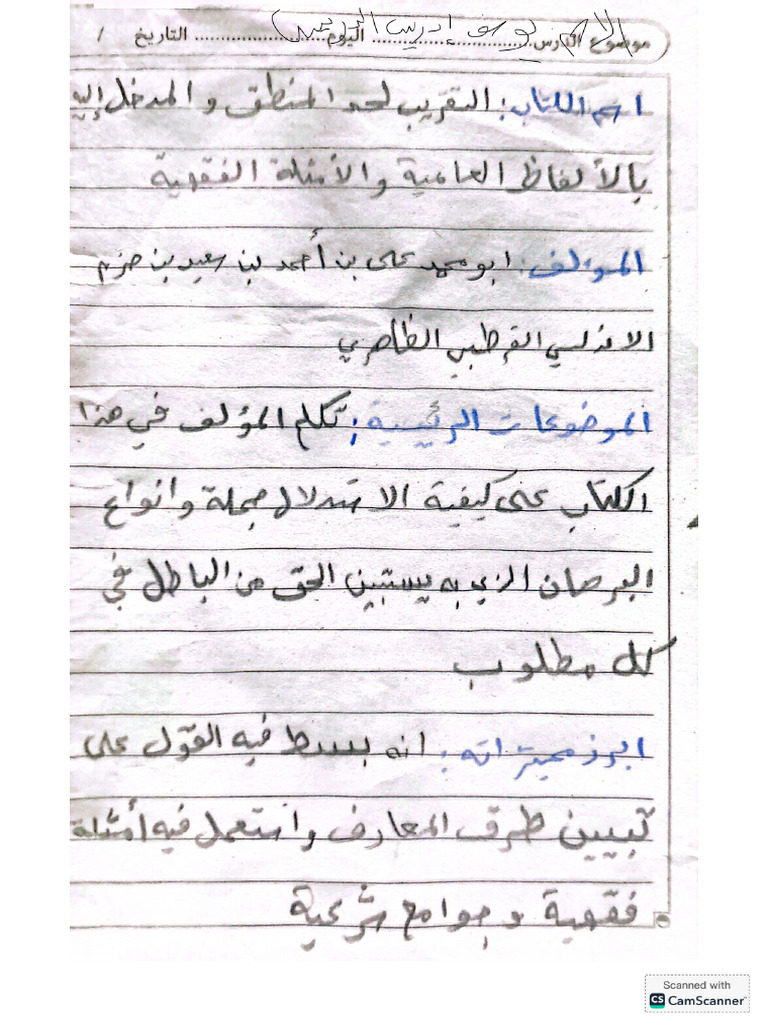 الاسم يوسف إدريس
موضوع الدرس ............ اليوم ............ التاريخ /
اسم الكتاب: التقريب لحد المنطق و المدخل إليه
بالألفاظ العامية والأمثلة الفقهية
المؤلف: ابو محمد علي بن أحمد بن سعيد بن حزم
الاندلسي القرطبي الظاهري
الموضوعات الرئيسية: تكلم المؤلف في هذا
الكتاب عن كيفية الاستدلال جملة وانواع
البرهان الذي به يستبين الحق من الباطل في
كل مطلوب
ابرز مميزاته: انه بسط فيه القول على
تبيين طرق المعارف واستعمل فيه أمثلة
فقهية وجوامع شرعية
Scanned with
CS CamScanner